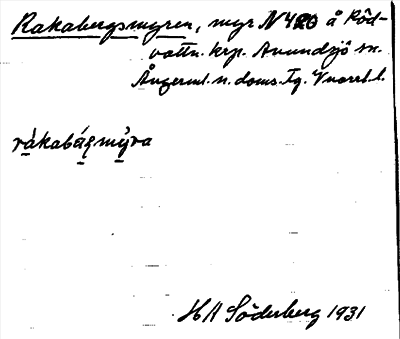 Rakabergsmyren, myr N 420 å Röd-
vattn. krp. Anundsjö sn.
Ångerml. n. doms. Tg.
rákabáʒmýra
H A Söderberg 1931